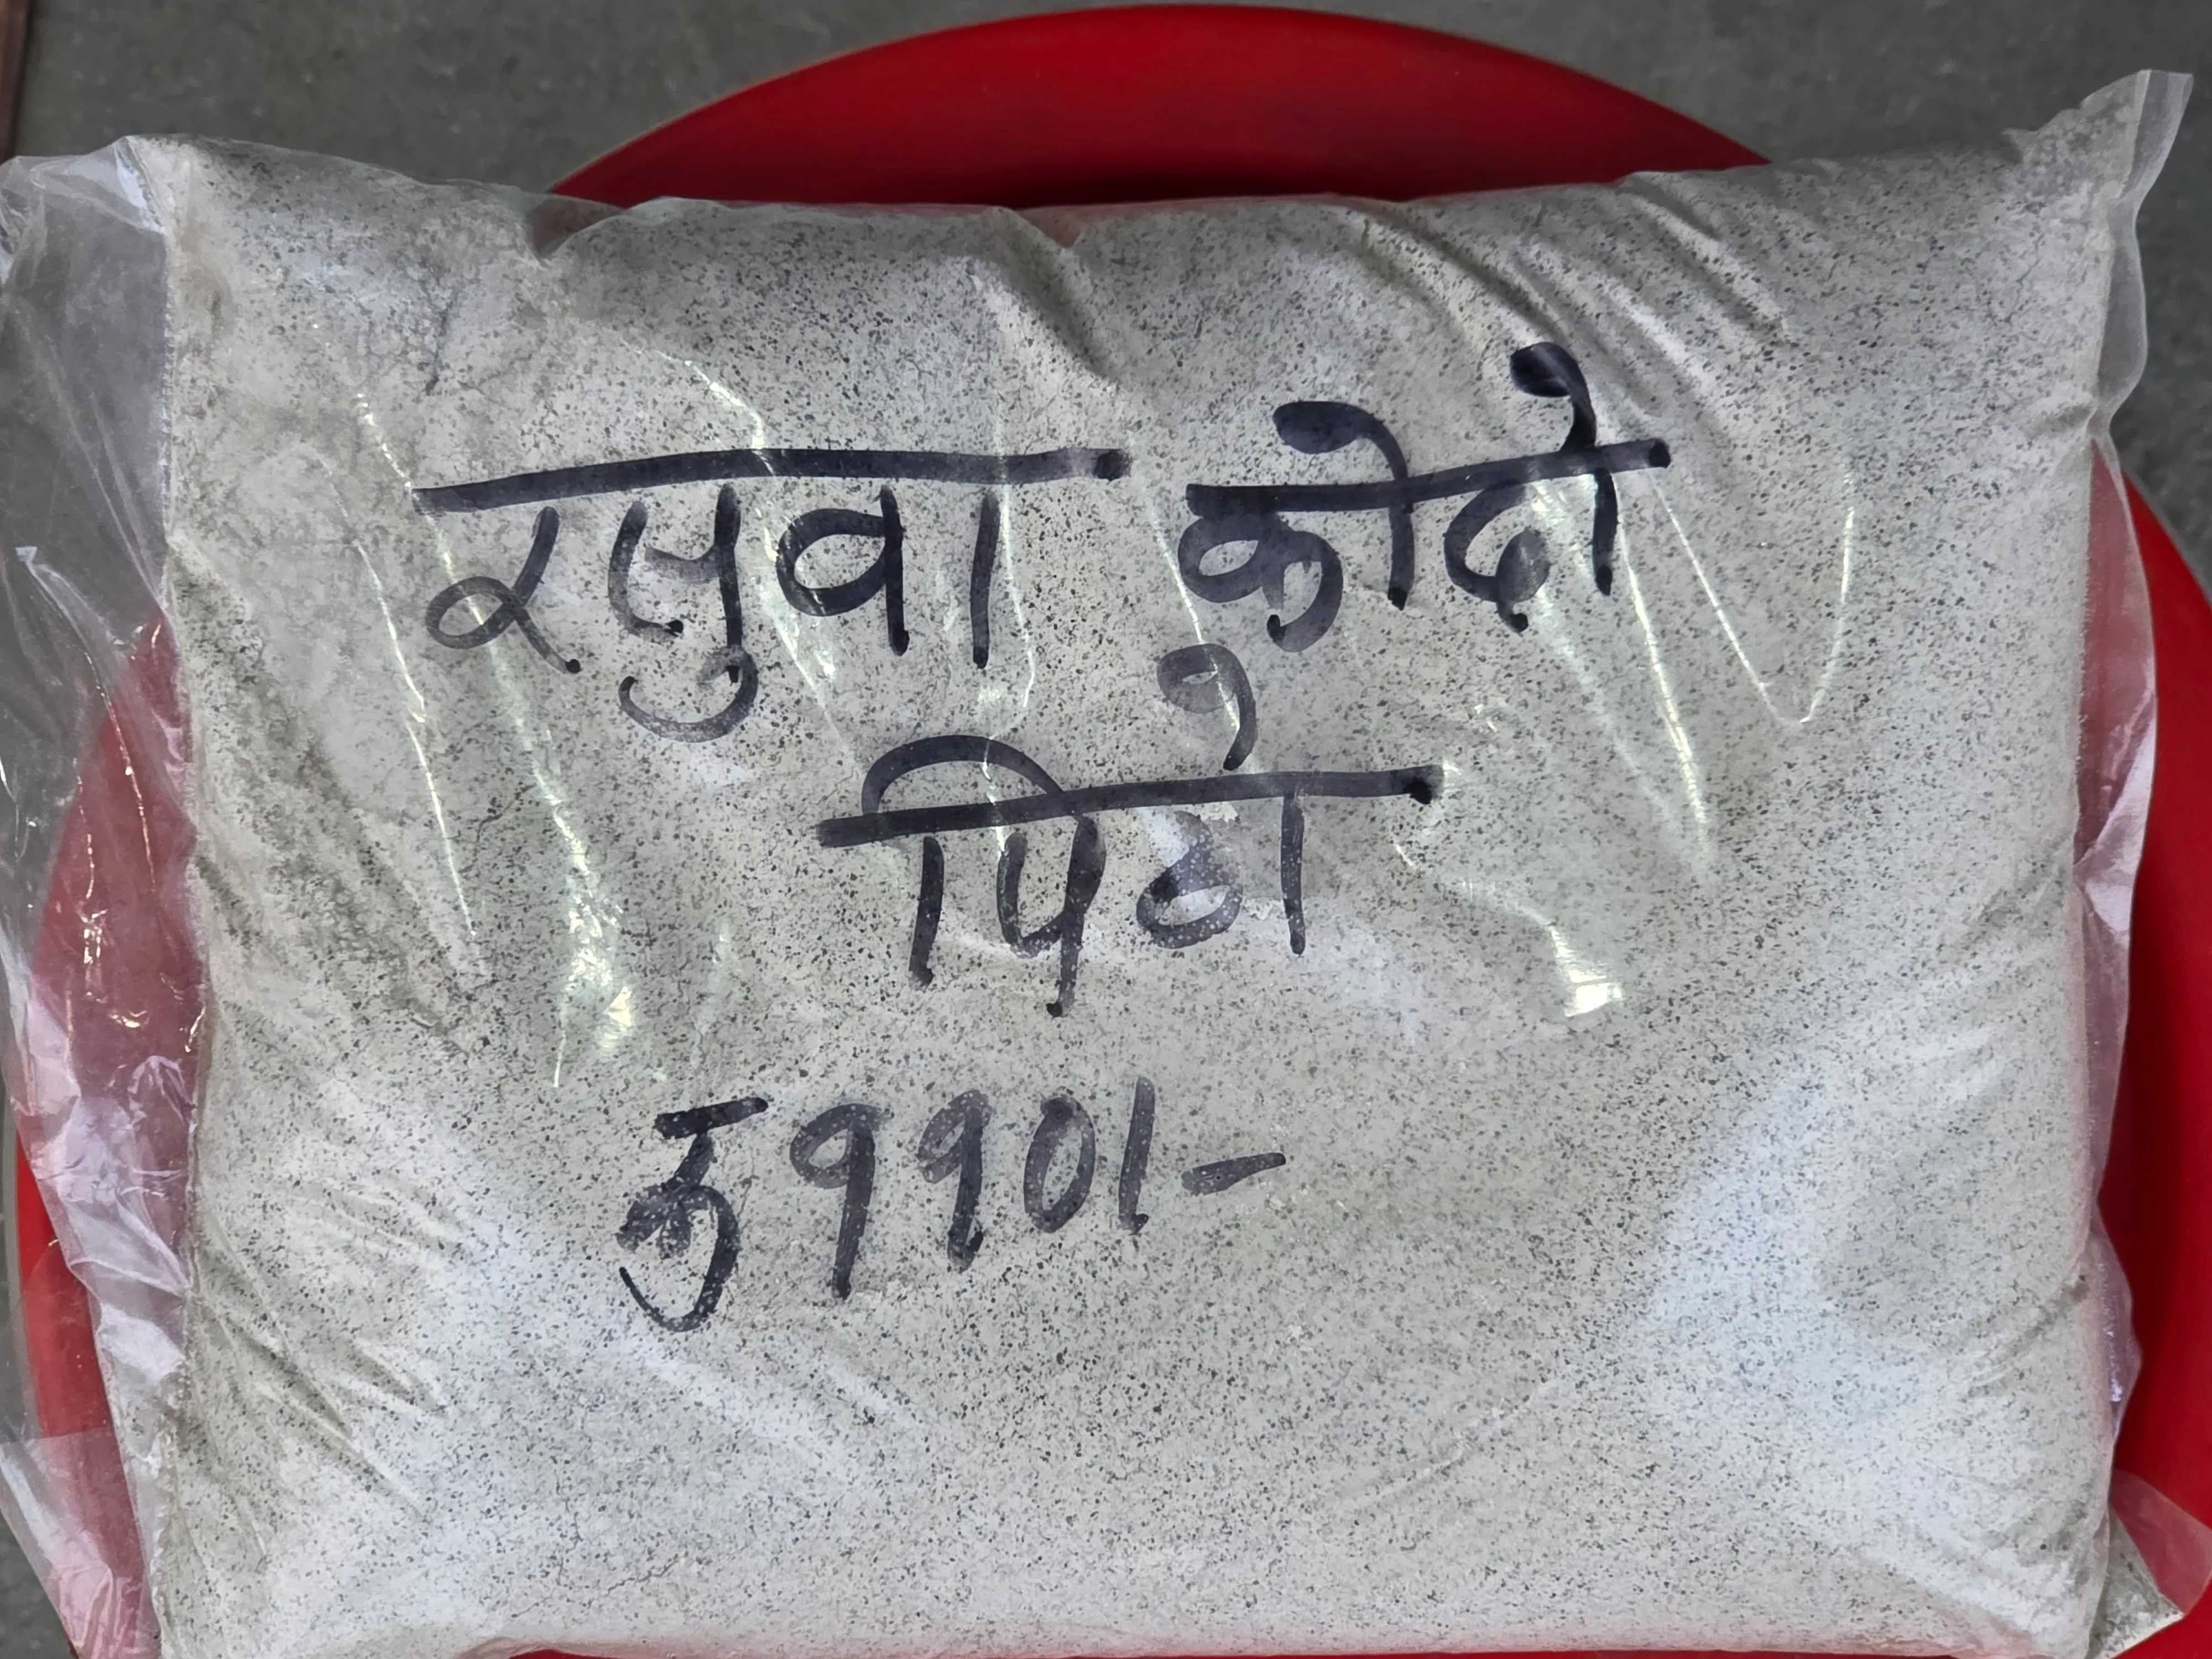 रसुवा कोदो
पिठो
रु ११०।-